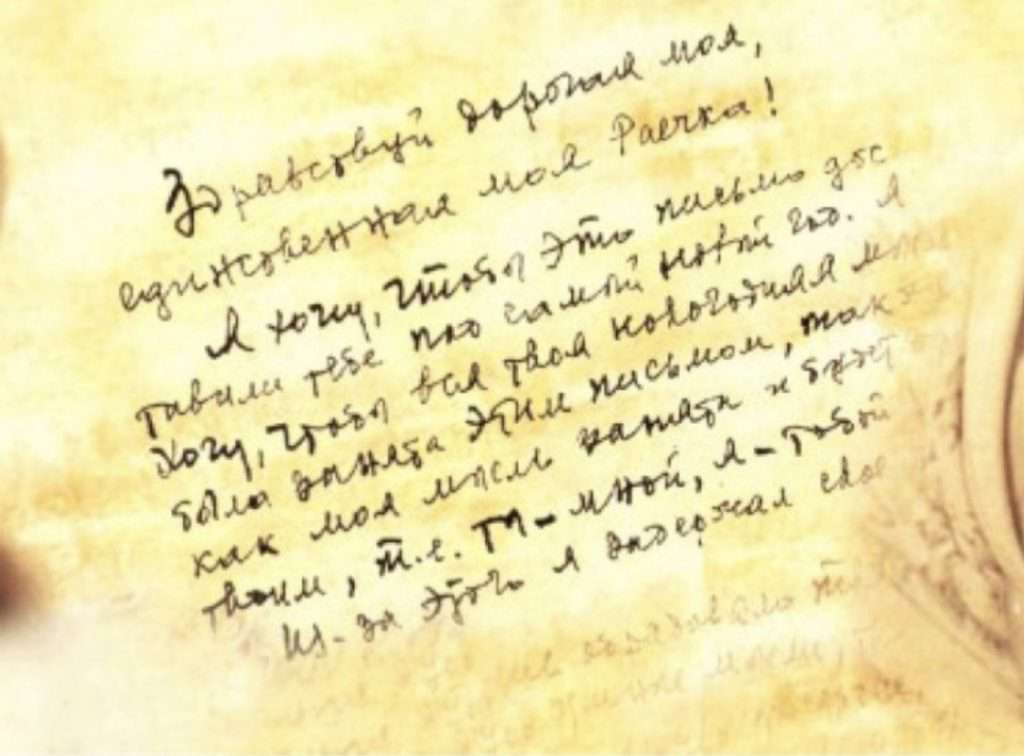 Здравствуй дорогая моя,
единственная моя Раечка!
Я хочу, чтобы это письмо дос
тавили тебе под самый новый год. Я
хочу, чтобы вся твоя новогодняя
была занята этим письмом, так же
как моя мысль занята и будет
твоим, т.е. ты - мной, я - тобой
Из-за этого я задержал свое